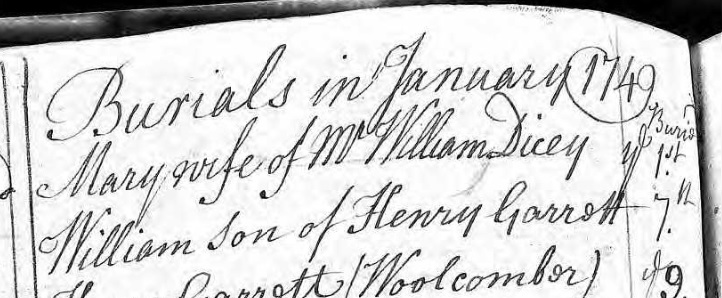 Burials in January 1749
Burid
Mary wife of Mr William Dicey ye 1st
William Son of Henry Garrett 7th
Garrett (Woolcomber) ye 9